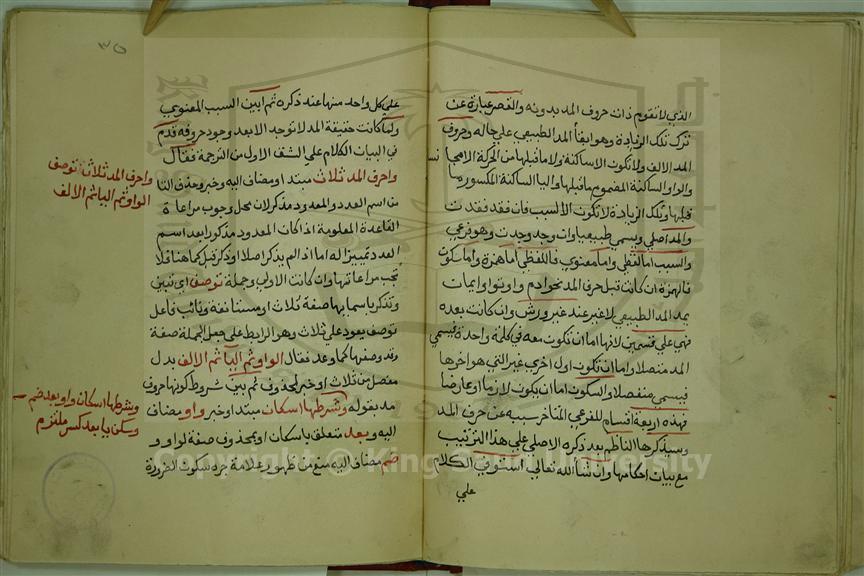 الذي لا تقوم ذات حروف المد بدونه والقصر عبارة عن
ترك تلك الزيادة وهو ابقأ المد الطبيعي علي حاله وحروف
المد الالف ولا تكون الا ساكنة ولا ما قبلها من الحركة الا مجا نسا
والواو الساكنة المضموم ما قبلها واليا الساكنة المكسور ما
قبلها وتلك الزيادة لا تكون الا لسبب فان فقد فقدت
والمد اصلي ويسمي طبيعيا وان وجد وجدت وهو فرعي
والسبب اما لفظي واما معنوي فاللفظي اما همزة واما سكون
فالهمزة ان كانت قبل حرف المد نحو ادم واوتوا وايمان
يمد المد الطبيعي لا غير عند غير ورش وان كانت بعده
فهي علي قسمين لانها اما ان تكون معه في كلمة واحدة فيسمي
المد متصلا واما ان تكون اول اخري غير التي هو اخرها
فيسمي منفصلا والسكون اما ان يكون لازما او عارضا
فهذه اربعة اقسام للفرعي المتاخر سببه عن حرف المد
وسيذكرها الناظم بعد ذكره الاصلي علي هذا الترتيب
مع بيان احكامها وان شأ الله تعالي استوفي الكلام
علي
٣٥
علي كل واحد منها عند ذكره ثم ابين السبب المعنوي
ولما كانت حقيقة المد لا توجد الا بعد وجود حروفه قدم
في البيان الكلام علي الشق الاول من الترجمة فقال
واحرف المد ثلاث مبتدا ومضاف اليه وخبر وحذف التا
من اسم العدد والمعدود مذكر لان محل وجوب مراعاة
القاعدة المعلومة اذا كان المعدود مذكورا بعد اسم
العدد تمييزا له اما اذا لم يذكر اصلا او ذكر قبل كما هنا فلا
تجب مراعاتها وان كانت الاولي وجملة توصف اي تبين
وتذكر باسمايها صفة ثلاث او مستانفة ونايب فاعل
توصف يعود علي ثلاث وهو الرابط علي جعل الجملة صفة
وقد وصفها كما وعد فقال الواو ثم اليآ ثم الالف بدل
مفصل من ثلاث او خبر لمحذوف ثم بين شروط كونها حروف
مد بقوله وشرطها اسكان مبتدا وخبر واو مضاف
اليه وبعد متعلق باسكان او بمحذوف صفة لواو و
ضم مضاف اليه منع من ظهور علامة جره سكون الضرورة
واحرف المد ثلاث توصف
الواو ثم اليا ثم الالف
وشرطها اسكان واو بعد ضم
وسكن يا بعد كسر ملتزم
Copyright © King Saud University